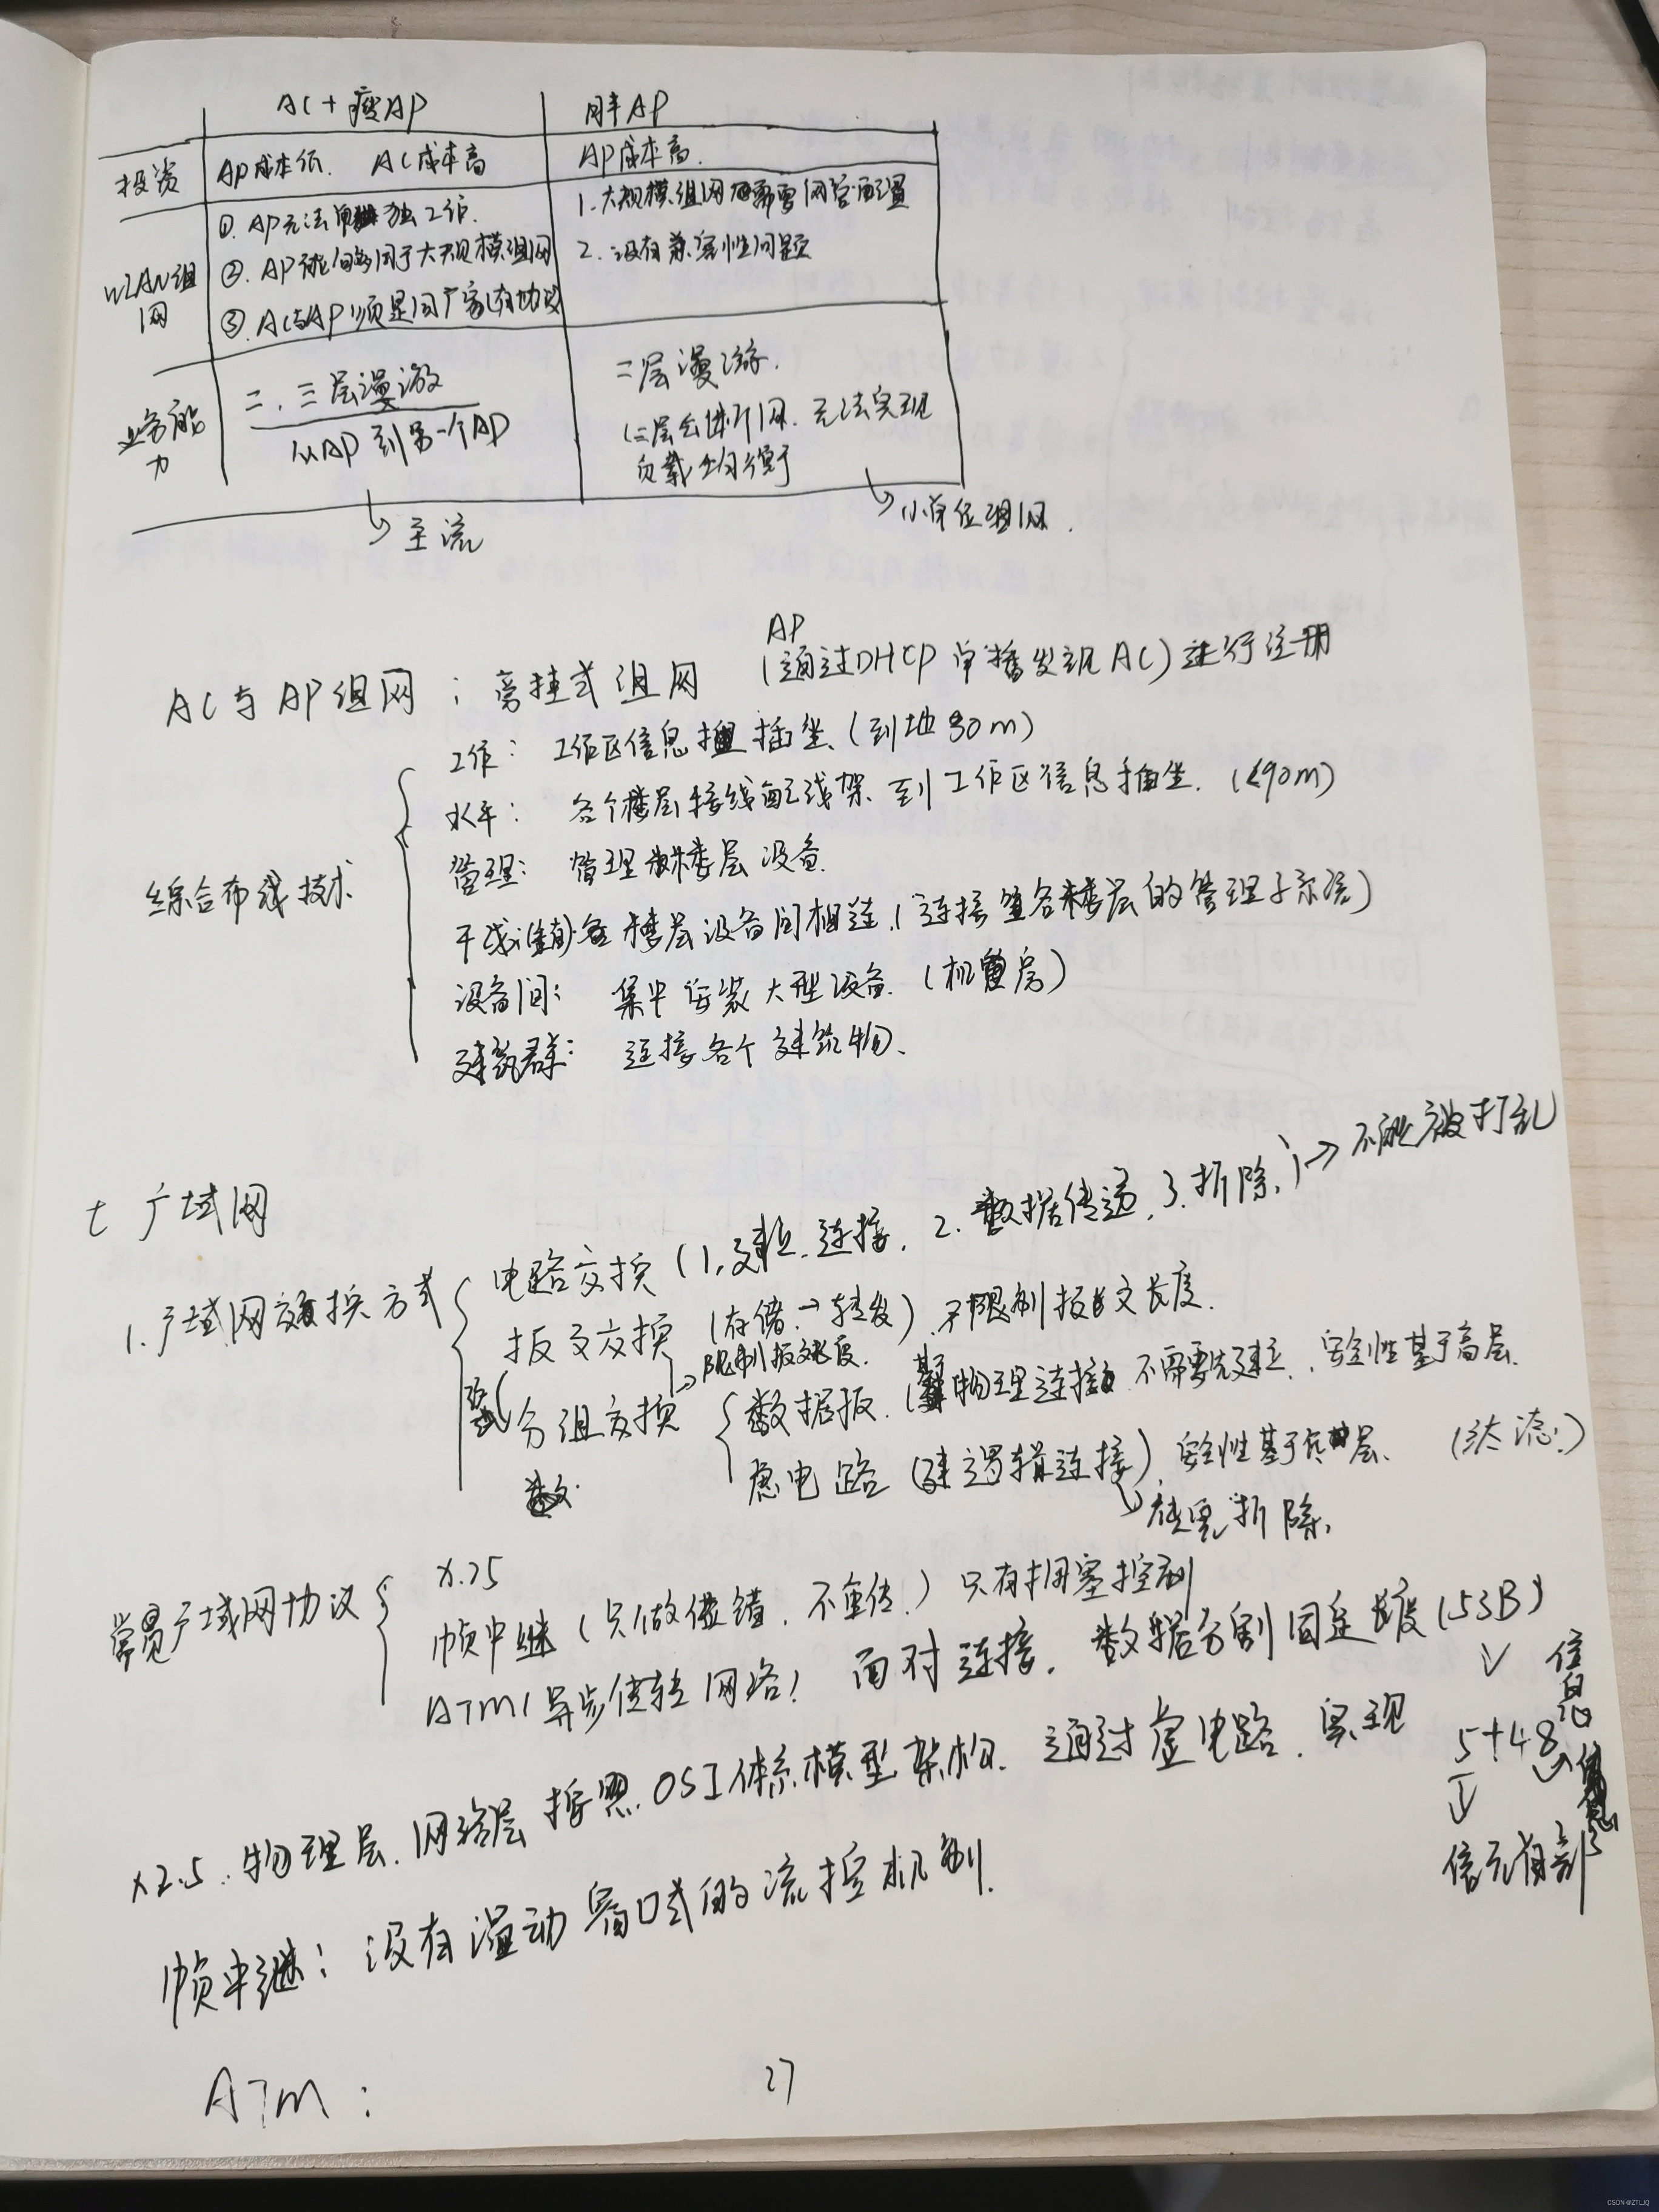 AC+瘦AP 胖AP
投资 AP成本低、 AC成本高 AP成本高.
WLAN组网
①. AP无法单独工作.
②. AP能够用于大规模组网
③. AC与AP须是同厂家(有协议
1.大规模组网 需要网管配置
2.没有兼容性问题
业务能力
二、三层漫游
从AP到另一个AP
二层漫游.
(三层会断网.无法实现
负载均衡
主流
小单位组网.
AP
AC与AP组网:旁挂式组网 (通过DHCP 单播发现AC)进行注册
综合布线技术
工作: 工作区信息 插坐、(到地30m)
水平: 各个楼层接线配线架、到工作区信息插坐.(<90m)
管理: 管理 楼层设备.
干线 各楼层设备间相连.(连接 各楼层的管理子系统)
设备间: 集中安装大型设备.(机房)
建筑群: 连接各个建筑物、
七 广域网
1.广域网交换方式
电路交换(1.建立连接. 2.数据传递. 3.拆除.)→不能被打乱
报文交换 (存储→转发).不限制报文长度.
→限制报文长度.
分组交换
数据报.(基于物理连接 不需要先建立.安全性基于高层.
虚电路 (建逻辑连接).安全性基于 层、
拆除,
常见广域网协议
x.25
帧中继(只做 错.不重传.)只有拥塞控制
ATM(异步传转网络) 面对连接.数据分割固定长度(53B)
5+48→信息
信元首部
x2.5.物理层.网络层 按照OSI体系模型架构.通过虚电路.实现
帧中继:没有滑动窗口式的流控机制.
ATM:
27
CSDN @ZTLJQ